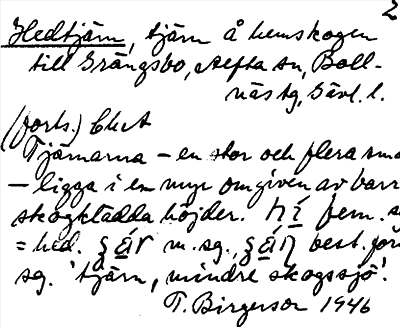 2
Hedtjärn, tjärn å hemskogen
till Grängsbo, Alfta sn, Boll-
näs tg, Gävl. l.
(forts.) Chct
Tjärnarna – en stor och flera små
– ligga i en myr omgiven av barr
skogklädda höjder. hí fem. s
= hed. m. sg., best. for
sg. 'tjärn, mindre skogssjö'.
T. Birgerson 1946